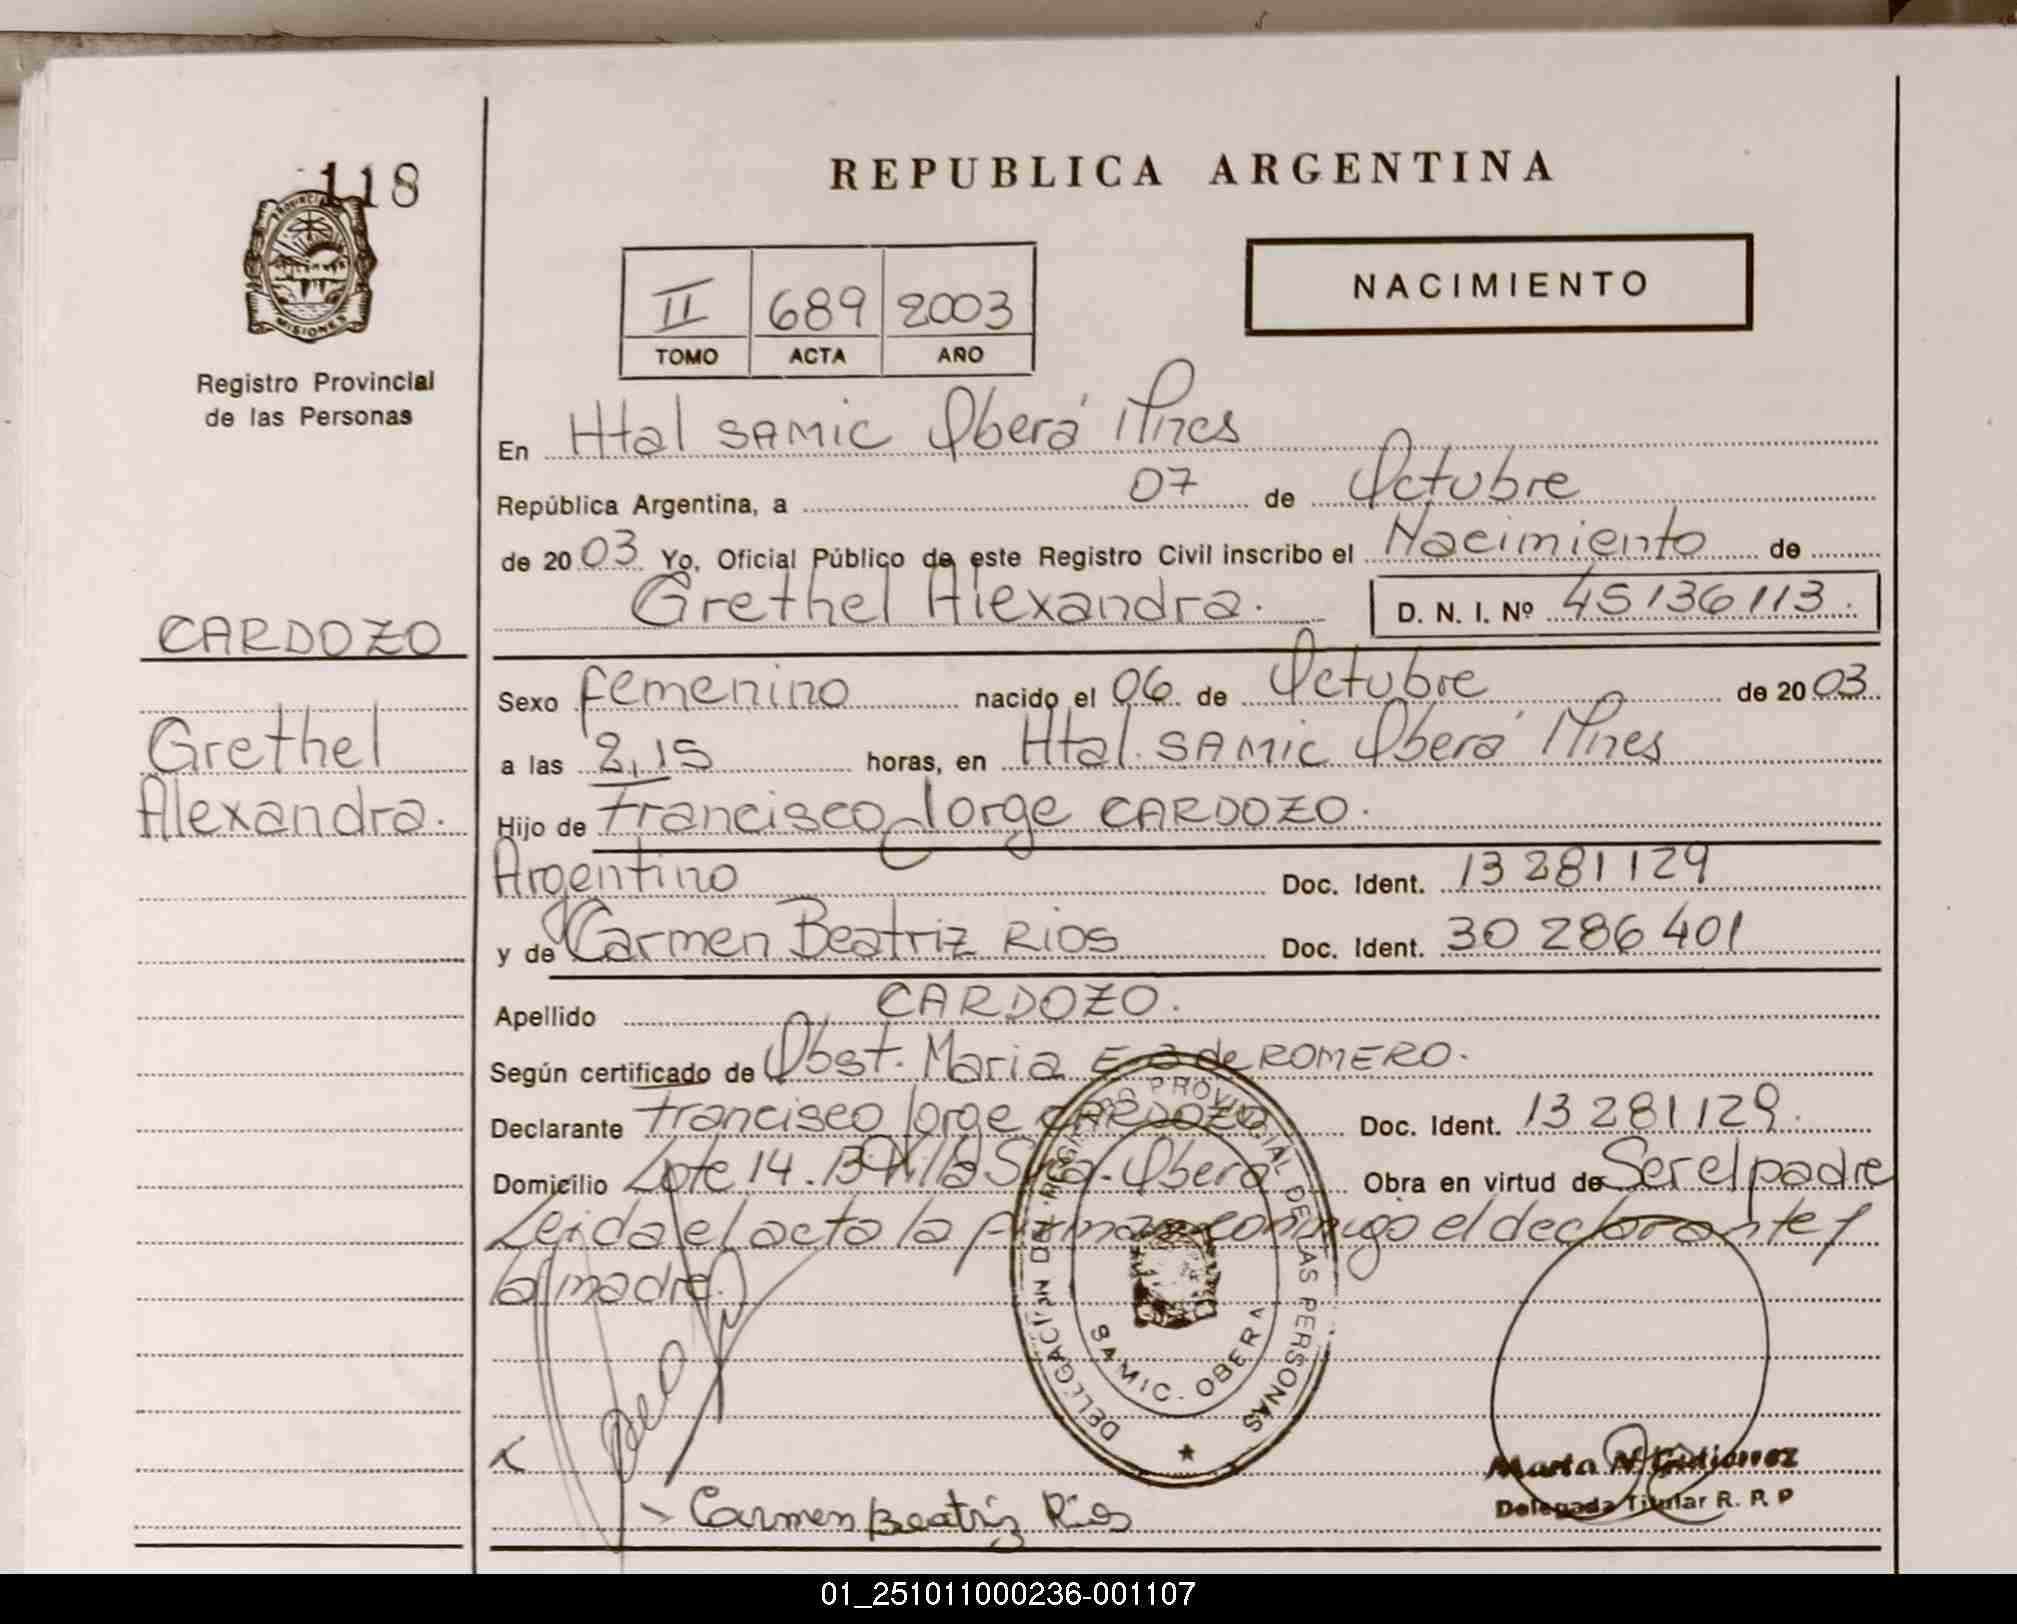 118
PROVINCIA
MISIONES
Registro Provincial
de las Personas
CARDOZO
Grethel
Alexandra.
REPUBLICA ARGENTINA
II 689 2003
TOMO ACTA AÑO
NACIMIENTO
En Htal SAMIC Oberá Mnes
República Argentina, a 07 de Octubre
de 2003 Yo, Oficial Público de este Registro Civil inscribo el Nacimiento de
Grethel Alexandra. D. N. I. Nº 45136113.
Sexo femenino nacido el 06 de Octubre de 2003
a las 2,15 horas, en Htal. SAMIC Oberá Mnes
Hijo de Francisco Jorge CARDOZO.
Argentino Doc. Ident. 13 281 129
y de Carmen Beatriz RIOS Doc. Ident. 30 286 401
Apellido CARDOZO.
Según certificado de Obst. Maria E. de ROMERO.
Declarante Francisco Jorge CARDOZO Doc. Ident. 13 281 129.
Domicilio Lote 14. Oberá Obra en virtud de Ser el padre
Leida el acta la firman conmigo el declarante y
la madre.
DELEGACION DEL REGISTRO PROVINCIAL DE LAS PERSONAS
SAMIC. OBERA
Carmen Beatriz Rios
Marta N. Gutierrez
Delegada Titular R. P. P
01_251011000236-001107